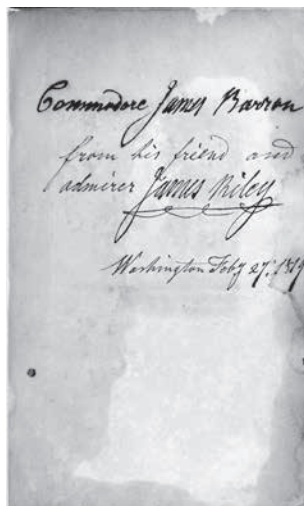 Commodore James Barron
from his friend and
admirer James Riley
Washington Feby 27th. 1819